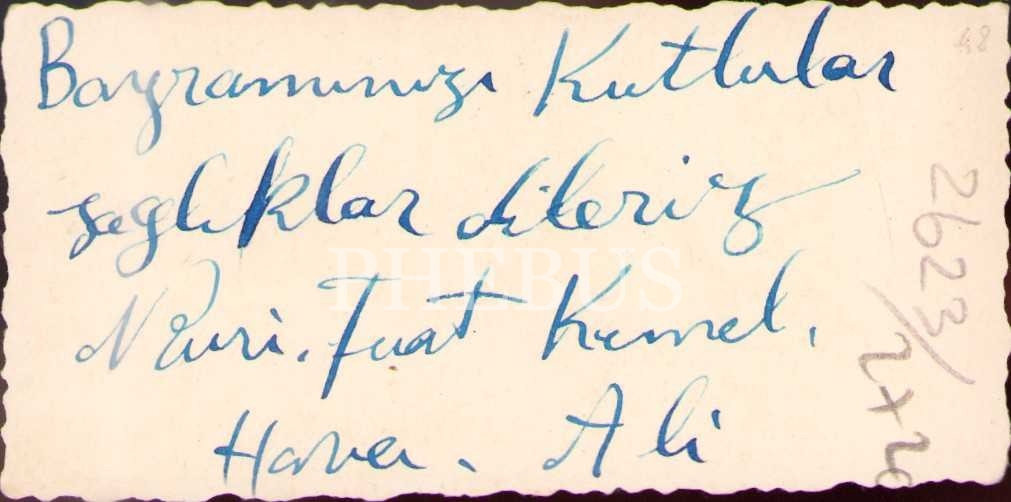 Bayramınızı Kutlular
sağlıklar dileriz
Nuri. Fuat Kemal.
Havva. Ali
48
2623/
2x20
PHEBUS